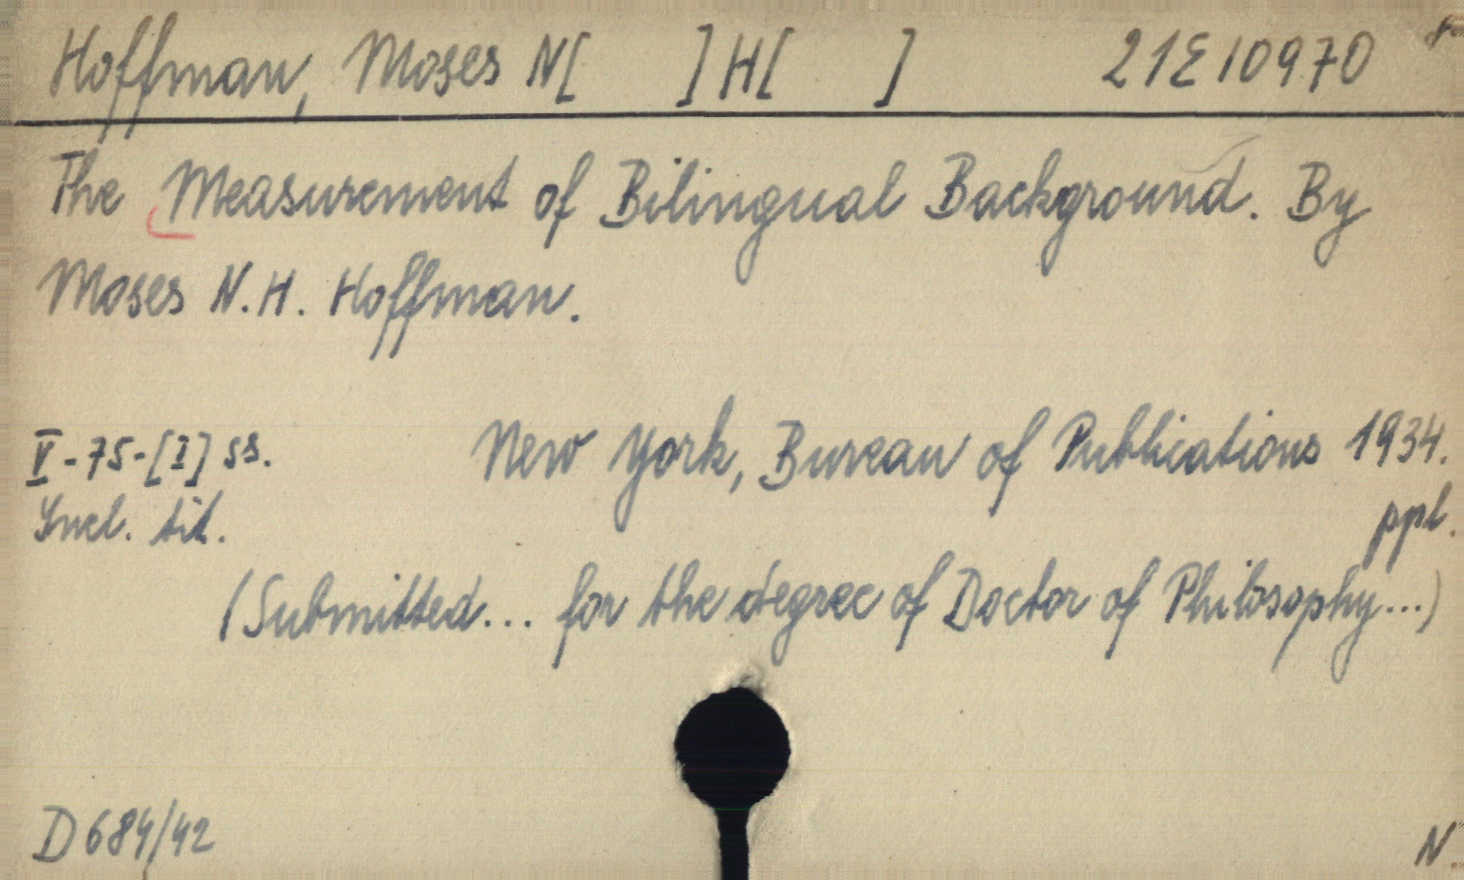 Hoffman, Moses N[ ] H[ ] 21E10970
The Measurement of Bilingual Background. By
Moses N. H. Hoffman.
V-75-[I] ss. New York, Bureau of Publications 1934.
Incl. tit. ppl.
(Submitted... for the degree of Doctor of Philosophy...)
D684/42 N.